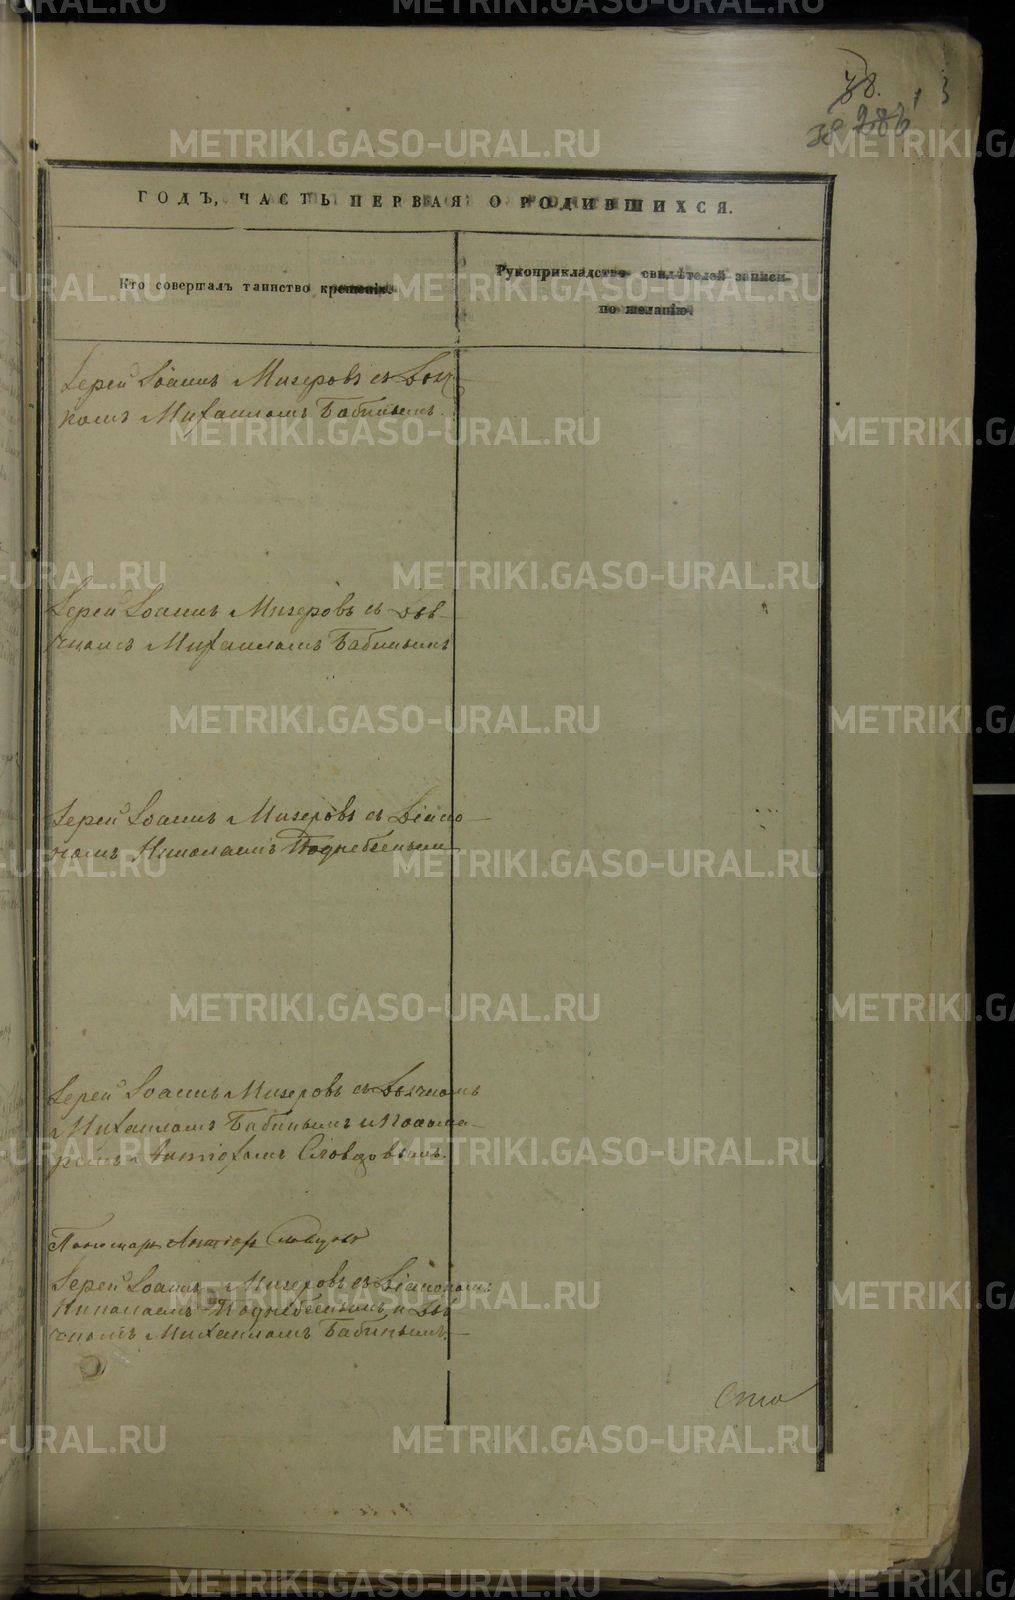 38.
38 286 1 3
ГОДЪ, ЧАСТЬ ПЕРВАЯ О РОДИВШИХСЯ.
Кто совершалъ таинство крещенія.
Рукоприкладство свидѣтелей записи
по желанію.
Іерей Іоаннъ Мизеровъ съ Дьяч-
комъ Михаиломъ Бабинымъ.
Іерей Іоаннъ Мизеровъ съ Дья-
чкомъ Михаиломъ Бабинымъ
Іерей Іоаннъ Мизеровъ съ Діако-
номъ Николаемъ Поднебеснымъ
Іерей Іоаннъ Мизеровъ съ Дьячкомъ
Михаиломъ Бабинымъ и Понома-
ремъ Антіохомъ Словцовымъ.
Пономарь Антіохъ Словцовъ
Іерей Іоаннъ Мизеровъ съ Діакономъ
Николаемъ Поднебеснымъ и Дья-
чкомъ Михаиломъ Бабинымъ.
METRIKI.GASO-URAL.RU